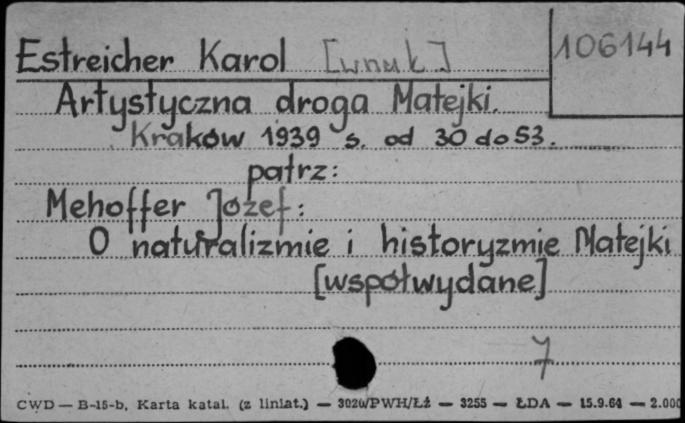 Estreicher Karol [wnuk]
106144
Artystyczna droga Matejki.
Kraków 1939 s. od 30 do 53.
patrz:
Mehoffer Józef:
O naturalizmie i historyzmie Matejki
[współwydane]
7
CWD — B-15-b, Karta katal. (z liniat.) — 3020/PWH/ŁŻ — 3255 — ŁDA — 15.9.64 — 2.000